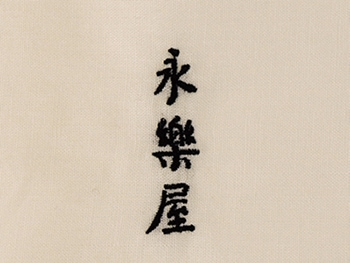 永樂屋